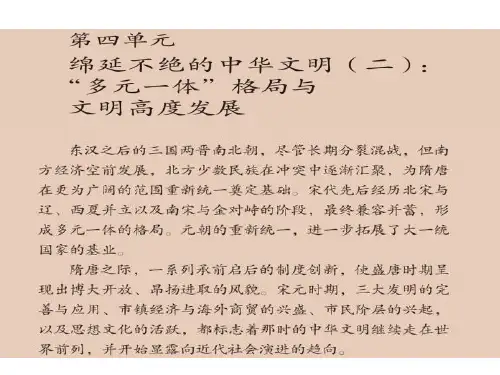 第四单元
绵延不绝的中华文明（二）：
“多元一体”格局与
文明高度发展
东汉之后的三国两晋南北朝，尽管长期分裂混战，但南
方经济空前发展，北方少数民族在冲突中逐渐汇聚，为隋唐
在更为广阔的范围重新统一奠定基础。宋代先后经历北宋与
辽、西夏并立以及南宋与金对峙的阶段，最终兼容并蓄，形
成多元一体的格局。元朝的重新统一，进一步拓展了大一统
国家的基业。
隋唐之际，一系列承前启后的制度创新，使盛唐时期呈
现出博大开放、昂扬进取的风貌。宋元时期，三大发明的完
善与应用、市镇经济与海外商贸的兴盛、市民阶层的兴起，
以及思想文化的活跃，都标志着那时的中华文明继续走在世
界前列，并开始显露向近代社会演进的趋向。